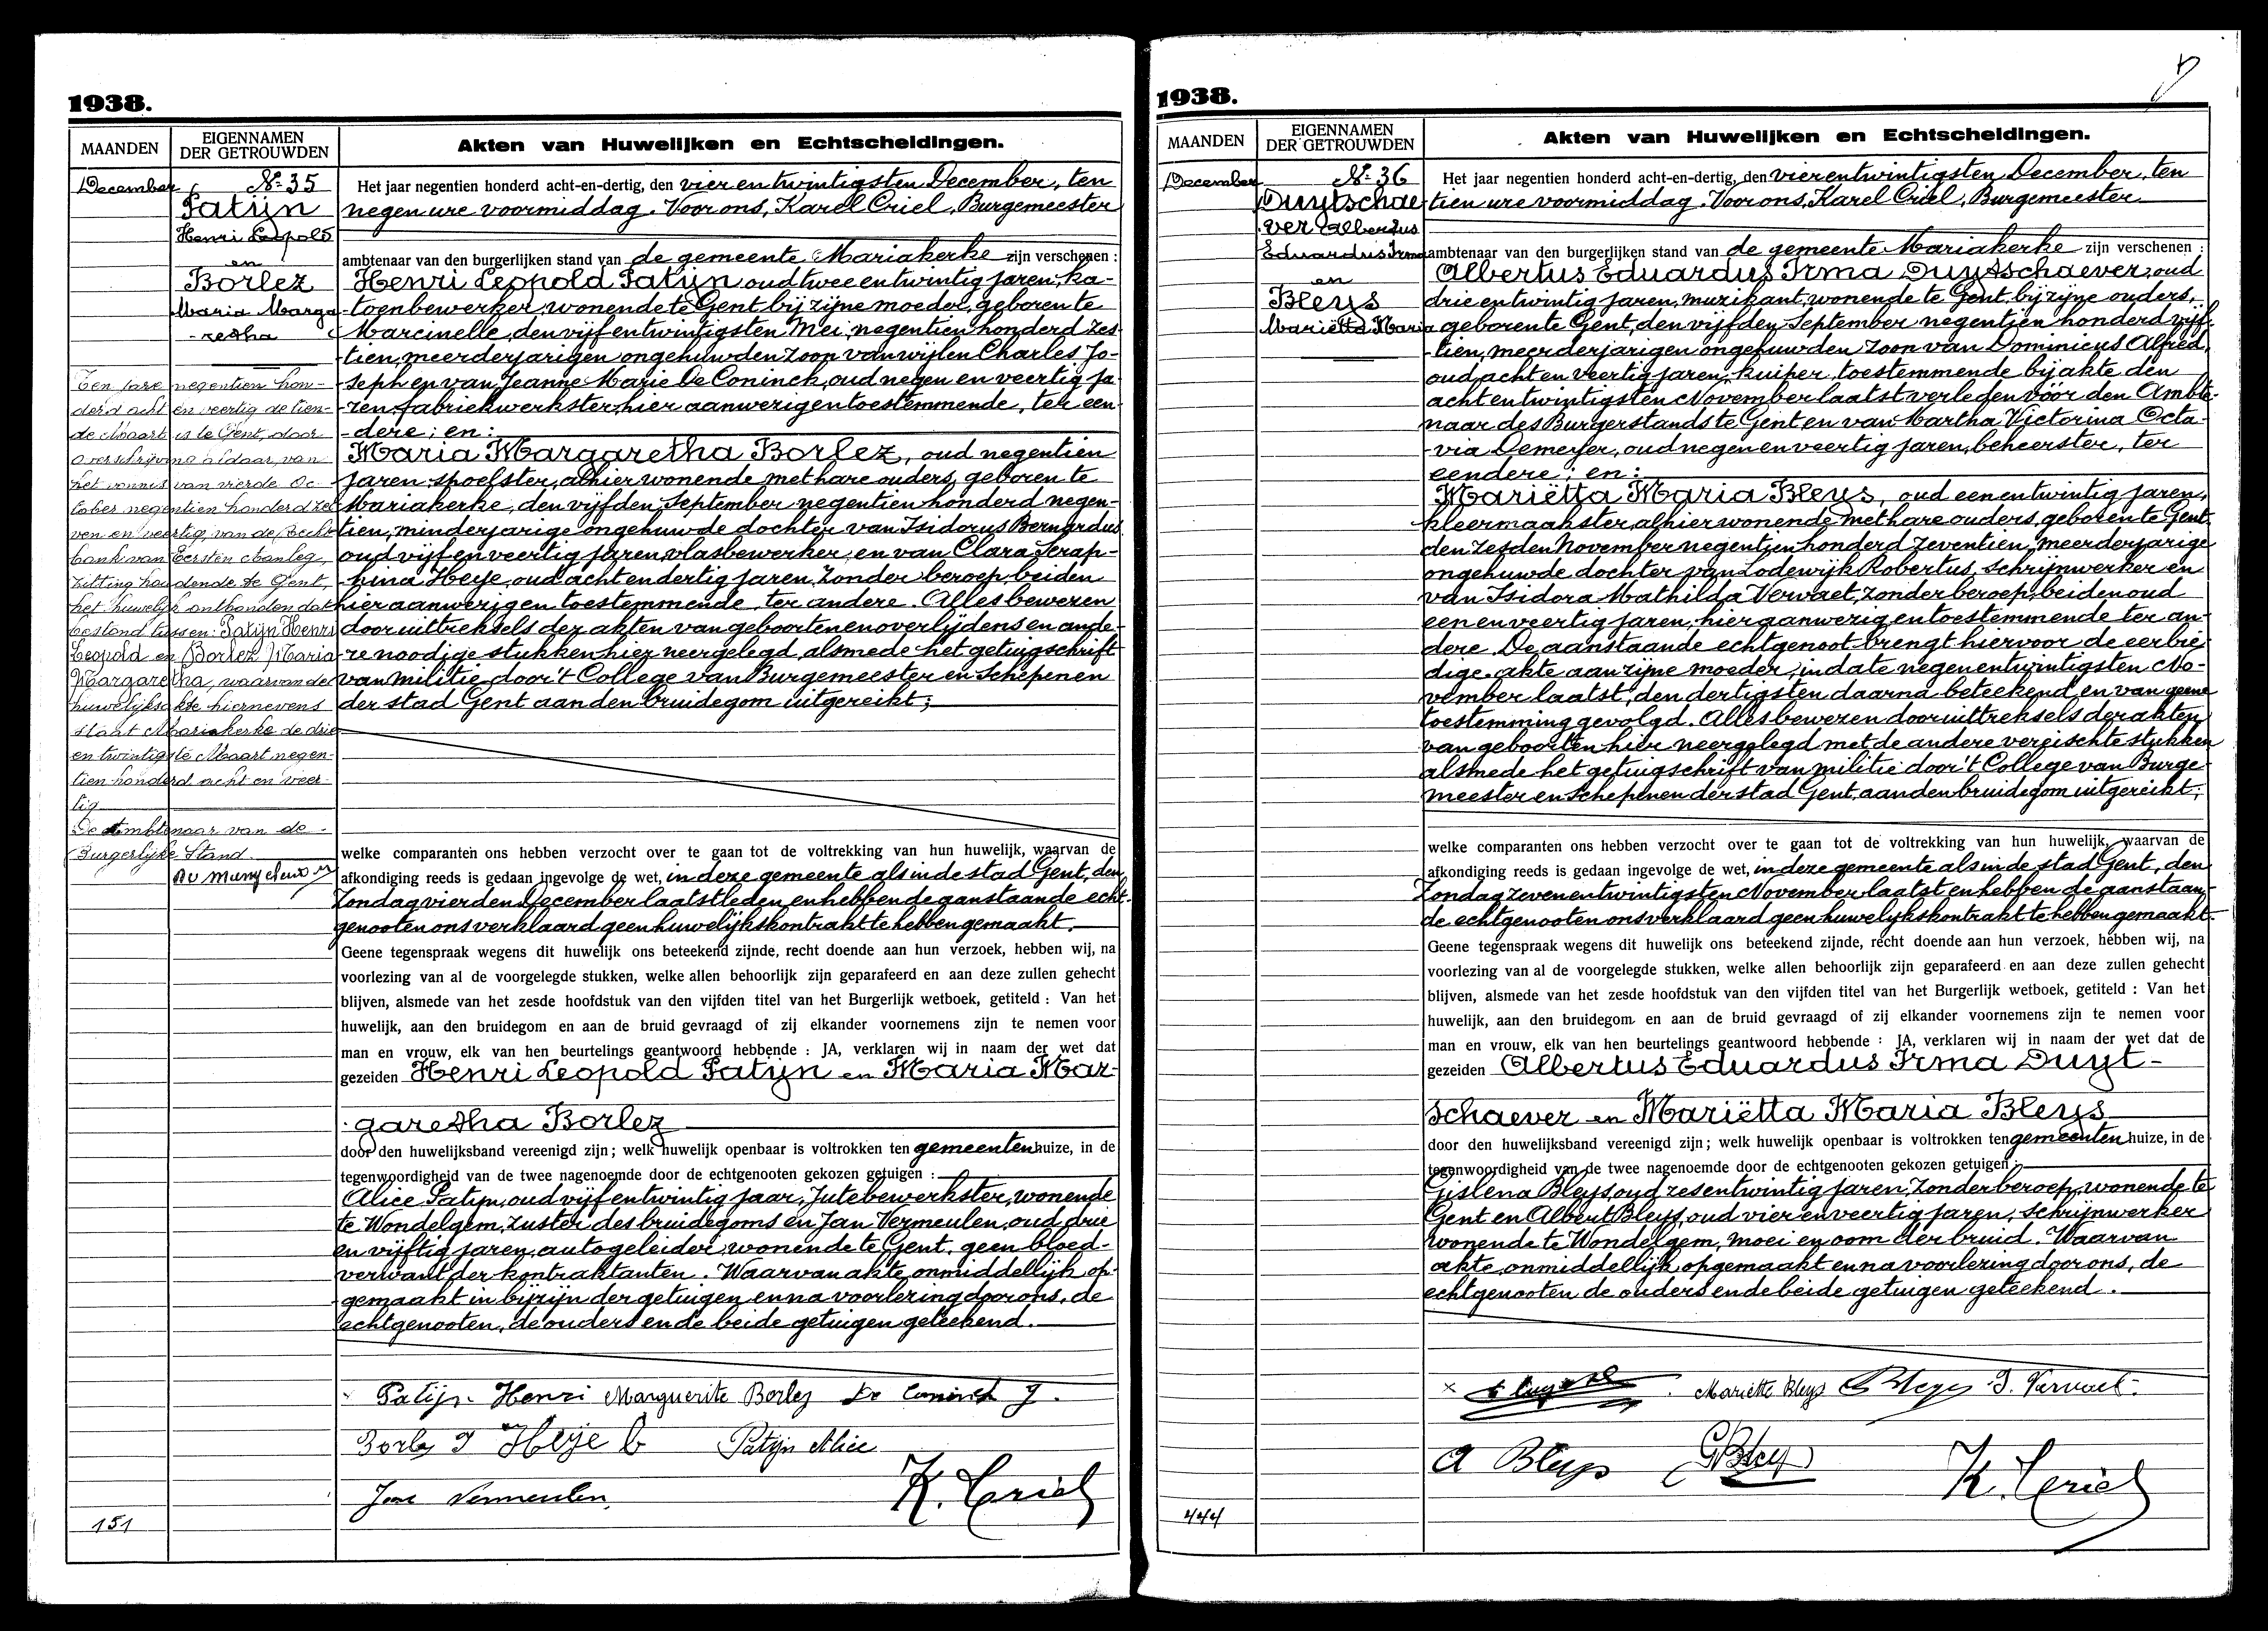 1938.
MAANDEN
EIGENNAMEN
DER GETROUWDEN
Akten van Huwelijken en Echtscheidingen.
December
N° 35
Patijn
Henri Leopold
en
Borlez
Maria Marga-
-retha
Ten jare negentien hon-
derd acht en veertig de tien-
de Maart is te Gent, door
overschrijving aldaar, van
het vonnis van vierde Oc-
tober negentien honderd ze-
ven en veertig, van de Recht-
bank van Eersten Aanleg,
zitting houdende te Gent,
het huwelijk ontbonden dat
bestond tussen: Patijn Henri
Leopold en Borlez Maria
Margaretha, waarvan de
huwelijksakte hiernevens
staat Mariakerke de drie
en twintigste Maart negen-
tien honderd acht en veer-
tig
De Ambtenaar van de
Burgerlijke Stand.
Het jaar negentien honderd acht-en-dertig, den vier en twintigsten December, ten
negen ure voormiddag. Voor ons, Karel Criel, Burgemeester
ambtenaar van den burgerlijken stand van de gemeente Mariakerke zijn verschenen :
Henri Leopold Patijn oud twee en twintig jaren, ka-
toenbewerker, wonende te Gent bij zijne moeder, geboren te
Marcinelle, den vijf entwintigsten Mei, negentien honderd zes
tien, meerderjarigen ongehuwden zoon van wijlen Charles Jo-
seph en van Jeanne Marie De Coninck, oud negen en veertig ja-
ren, fabriekwerkster, hier aanwezig en toestemmende, ter een-
-dere; en:
Maria Margaretha Borlez, oud negentien
jaren spoelster, alhier wonende met hare ouders, geboren te
Mariakerke, den vijfden September negentien honderd negen-
tien, minderjarige ongehuwde dochter van Isidorus Bernardus
oud vijf en veertig jaren, vlasbewerker, en van Clara Serap-
-hina Heije, oud acht en dertig jaren, zonder beroep, beiden
hier aanwezig en toestemmende, ter andere. Alles bewezen
door uittreksels der akten van geboorten en overlijdens en ande-
re noodige stukken hier neergelegd, alsmede het getuigschrift
van militie door 't College van Burgemeester en Schepenen
der stad Gent aan den bruidegom uitgereikt;
welke comparanten ons hebben verzocht over te gaan tot de voltrekking van hun huwelijk, waarvan de
afkondiging reeds is gedaan ingevolge de wet, in deze gemeente als in de stad Gent, den
Zondag vierden December laatstleden, en hebben de aanstaande echt-
genooten ons verklaard geen huwelijkskontrakt te hebben gemaakt.
Geene tegenspraak wegens dit huwelijk ons beteekend zijnde, recht doende aan hun verzoek, hebben wij, na
voorlezing van al de voorgelegde stukken, welke allen behoorlijk zijn geparafeerd en aan deze zullen gehecht
blijven, alsmede van het zesde hoofdstuk van den vijfden titel van het Burgerlijk wetboek, getiteld : Van het
huwelijk, aan den bruidegom en aan de bruid gevraagd of zij elkander voornemens zijn te nemen voor
man en vrouw, elk van hen beurtelings geantwoord hebbende : JA, verklaren wij in naam der wet dat
gezeiden Henri Leopold Patijn en Maria Mar-
garetha Borlez
door den huwelijksband vereenigd zijn; welk huwelijk openbaar is voltrokken ten gemeentenhuize, in de
tegenwoordigheid van de twee nagenoemde door de echtgenooten gekozen getuigen :
Alice Patijn, oud vijf entwintig jaar, Jutebewerkster, wonende
te Wondelgem, zuster des bruidegoms en Jan Vermeulen, oud drie
en vijftig jaren, autogeleider, wonende te Gent, geen bloed-
verwant der kontraktanten. Waarvan akte, onmiddellijk op-
gemaakt in bijzijn der getuigen en na voorlezing door ons, de
echtgenooten, de ouders en de beide getuigen geteekend.
Patijn Henri Marguerite Borlez De Coninck J.
Borlez I Heije C Patijn Alice
Jan Vermeulen K. Criel
151
1938.
MAANDEN
EIGENNAMEN
DER GETROUWDEN
Akten van Huwelijken en Echtscheidingen.
December
N° 36
Duytschae
ver Albertus
Eduardus Irma
en
Bleys
Mariëtta Maria
Het jaar negentien honderd acht-en-dertig, den vier en twintigsten December, ten
tien ure voormiddag. Voor ons, Karel Criel, Burgemeester
ambtenaar van den burgerlijken stand van de gemeente Mariakerke zijn verschenen :
Albertus Eduardus Irma Duytschaever, oud
drie en twintig jaren, muzikant, wonende te Gent, bij zijne ouders,
geboren te Gent, den vijfden September negentien honderd vijf-
tien, meerderjarigen ongehuwden zoon van Dominicus Alfred,
oud acht en veertig jaren, kuiper, toestemmende bij akte den
acht en twintigsten November laatst verleden vóór den Ambte-
naar des Burgerstands te Gent en van Martha Victorina Octa-
via Demeyer, oud negen en veertig jaren, beheerster, ter
eendere; en:
Mariëtta Maria Bleys, oud een en twintig jaren,
kleermaakster, alhier wonende met hare ouders, geboren te Gent,
den zesden November negentien honderd zeventien, meerderjarige
ongehuwde dochter van Lodewijk Robertus, schrijnwerker en
van Isidora Mathilda Vervaet, zonder beroep, beiden oud
een en veertig jaren, hier aanwezig en toestemmende ter an-
dere. De aanstaande echtgenoot brengt hiervoor de eerbie-
dige akte aan zijne moeder, in date negen en twintigsten No-
vember laatst, den dertigsten daarna beteekend, en van geene
toestemming gevolgd. Alles bewezen door uittreksels der akten
van geboorten hier neergelegd met de andere vereischte stukken
alsmede het getuigschrift van militie door 't College van Burge-
meester en Schepenen der stad Gent, aan den bruidegom uitgereikt;
welke comparanten ons hebben verzocht over te gaan tot de voltrekking van hun huwelijk, waarvan de
afkondiging reeds is gedaan ingevolge de wet, in deze gemeente als in de stad Gent, den
Zondag zeven en twintigsten November laatst en hebben de aanstaan-
de echtgenooten ons verklaard geen huwelijkskontrakt te hebben gemaakt.
Geene tegenspraak wegens dit huwelijk ons beteekend zijnde, recht doende aan hun verzoek, hebben wij, na
voorlezing van al de voorgelegde stukken, welke allen behoorlijk zijn geparafeerd en aan deze zullen gehecht
blijven, alsmede van het zesde hoofdstuk van den vijfden titel van het Burgerlijk wetboek, getiteld : Van het
huwelijk, aan den bruidegom en aan de bruid gevraagd of zij elkander voornemens zijn te nemen voor
man en vrouw, elk van hen beurtelings geantwoord hebbende : JA, verklaren wij in naam der wet dat de
gezeiden Albertus Eduardus Irma Duyt-
schaever en Mariëtta Maria Bleys
door den huwelijksband vereenigd zijn; welk huwelijk openbaar is voltrokken ten gemeentenhuize, in de
tegenwoordigheid van de twee nagenoemde door de echtgenooten gekozen getuigen :
Gislena Bleys, oud zes entwintig jaren, zonder beroep, wonende te
Gent en Albert Bleys, oud vier en veertig jaren, schrijnwerker
wonende te Wondelgem, moei en oom der bruid. Waarvan
akte, onmiddellijk opgemaakt en na voorlezing door ons, de
echtgenooten de ouders en de beide getuigen geteekend.
Mariëtte Bleys Bleys I. Vervaet
A Bleys G Bleys K. Criel
444